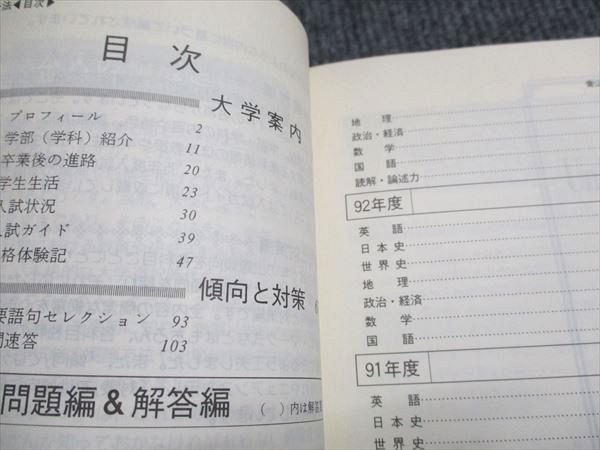 法◀目次▶
目次
大学案内
プロフィール 2
学部(学科)紹介 11
卒業後の進路 20
学生生活 23
入試状況 30
入試ガイド 39
格体験記 47
傾向と対策
要語句セレクション 93
問速答 103
問題編&解答編 ( )内は解答
地理
政治・経済
数学
国語
読解・論述力
92年度
英語
日本史
世界史
地理
政治・経済
数学
国語
91年度
英語
日本史
世界史